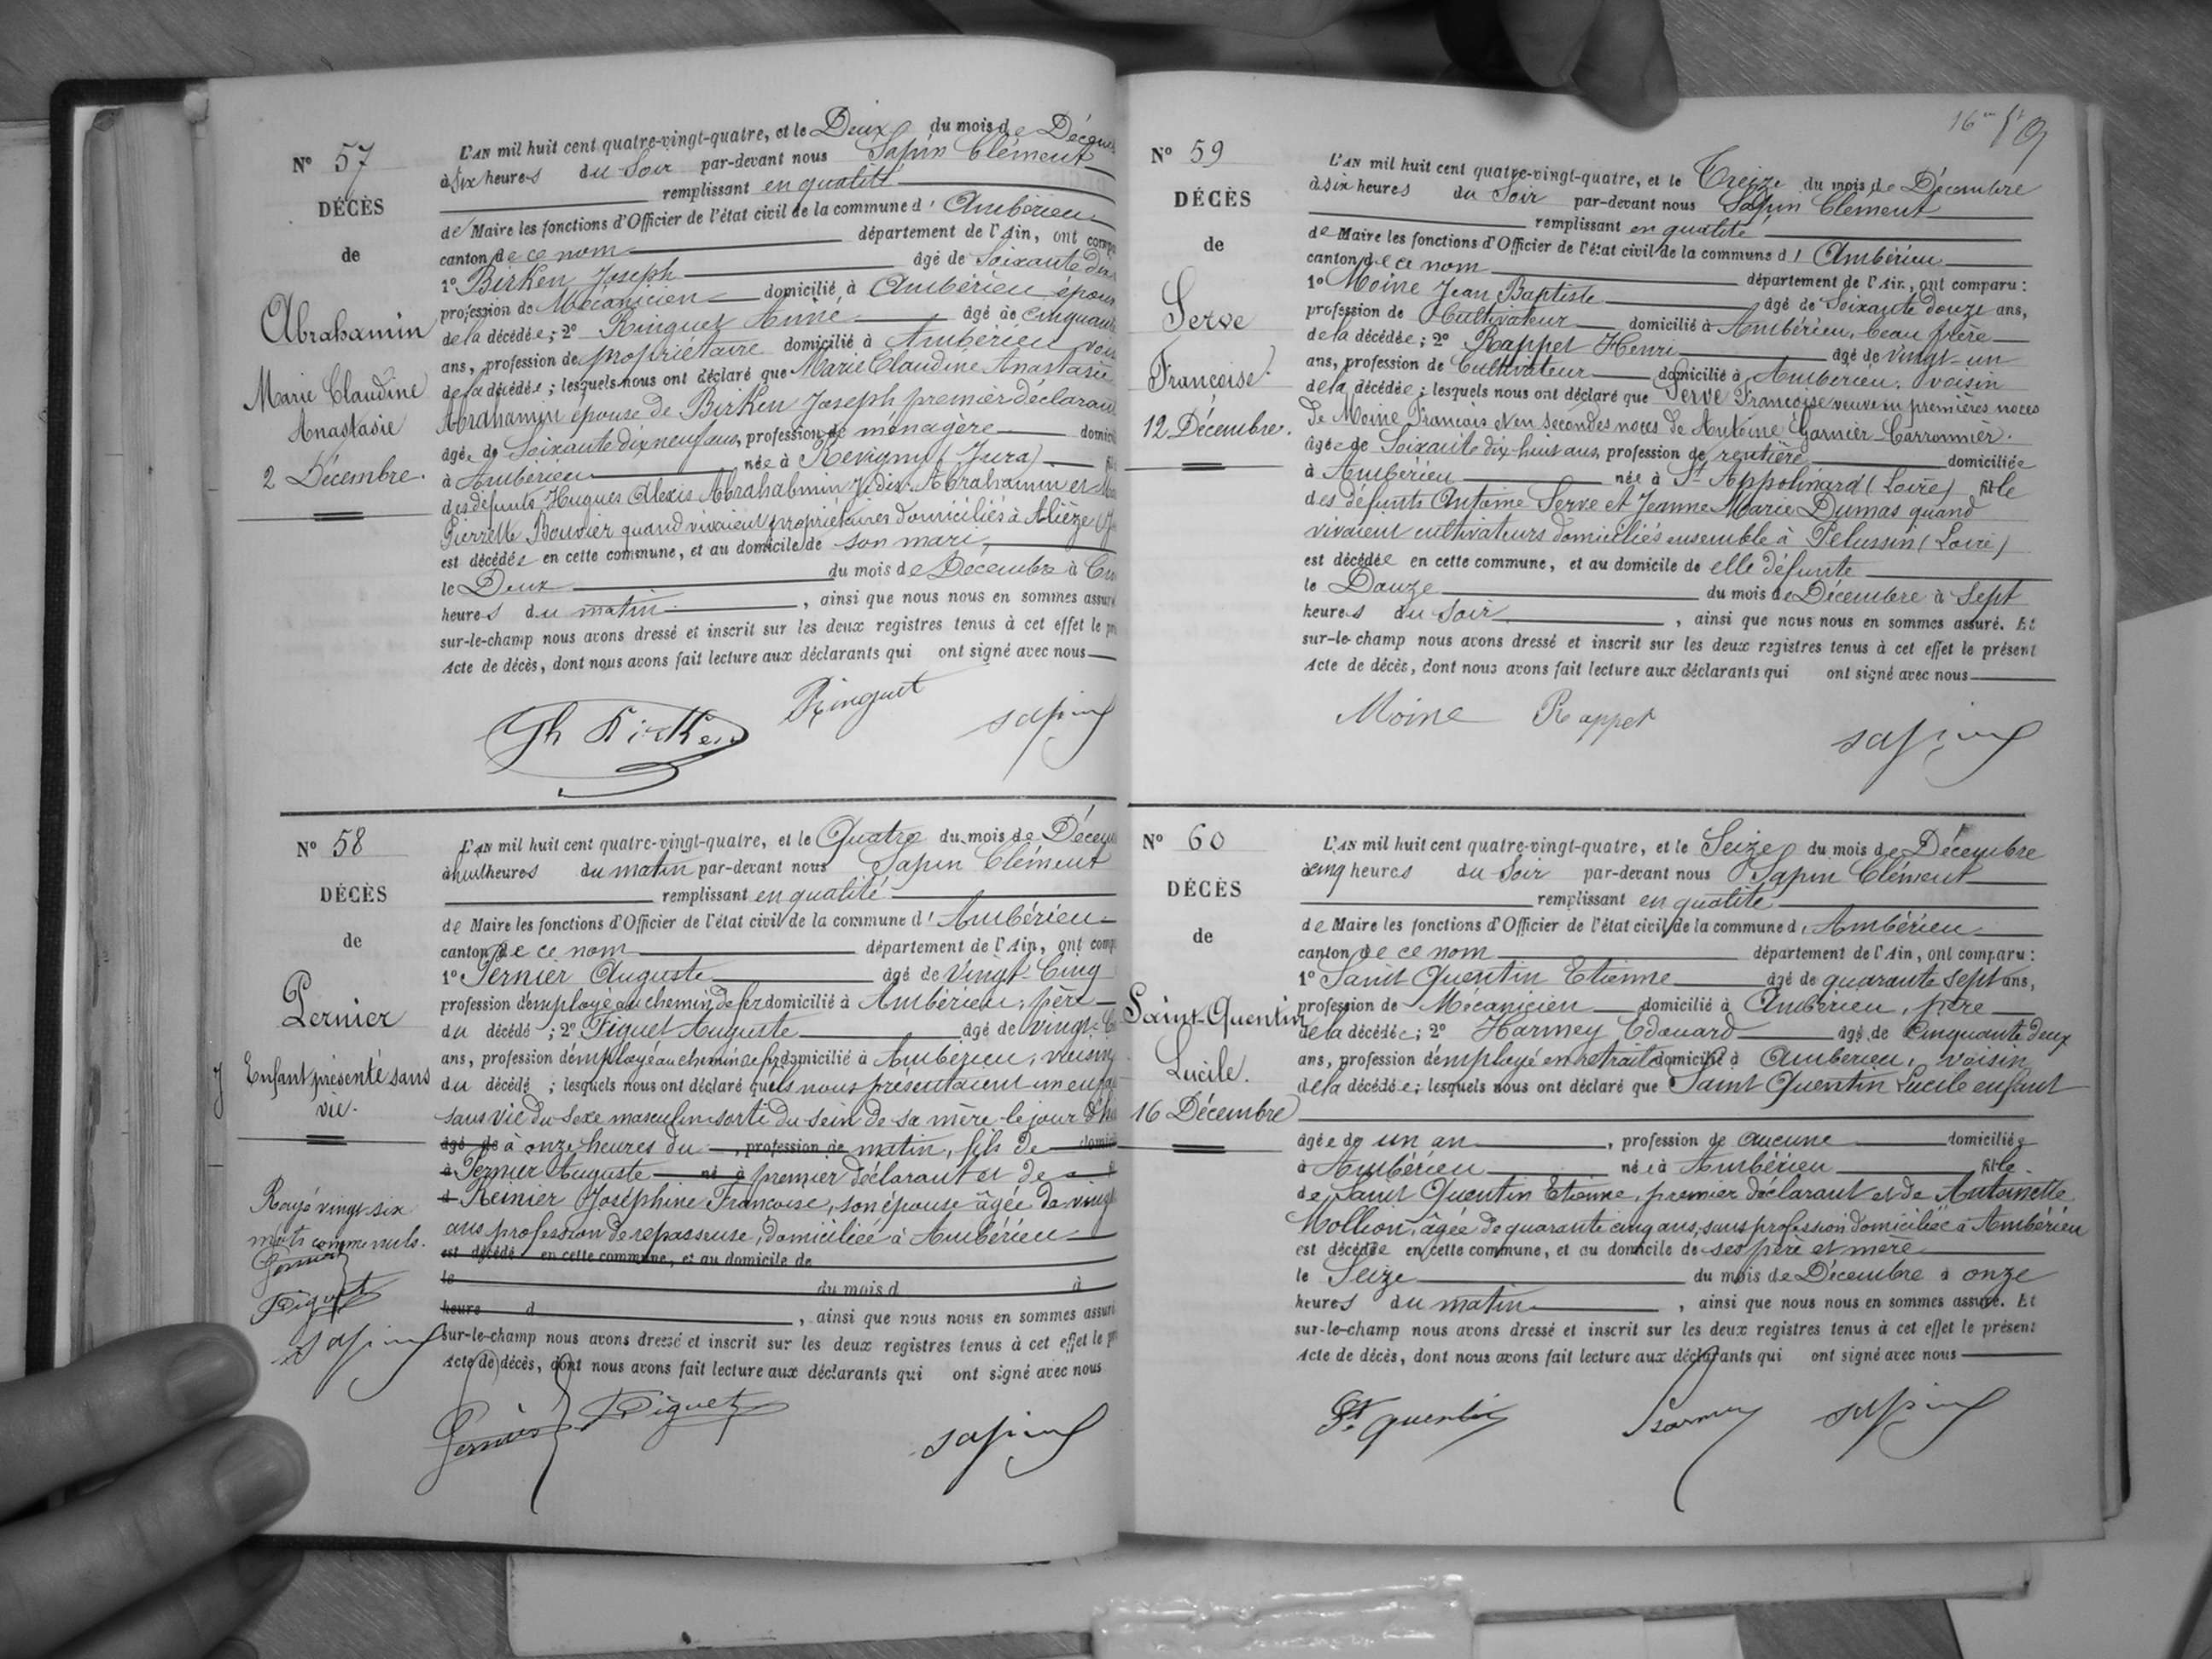 N° 57
DÉCÈS
de
Abrahamin
Marie Claudine
Anastasie
2 Décembre.
L'AN mil huit cent quatre-vingt-quatre, et le Deux du mois de Décem
à Six heures du Soir par-devant nous Sapin Clément
remplissant en qualité
de Maire les fonctions d'Officier de l'état civil de la commune d' Ambérieu
canton de ce nom département de l'Ain, ont comp
1° Birken Joseph âgé de Soixante dix
profession de Mécanicien domicilié à Ambérieu époux
de la décédée; 2° Ringuet Aimé âgé de cinquante
ans, profession de propriétaire domicilié à Ambérieu, vois
de la décédée; lesquels nous ont déclaré que Marie Claudine Anastasie
Abrahamin épouse de Birken Joseph premier déclarant
âgée de Soixante dix neuf ans, profession de ménagère domici
à Ambérieu née à Revigny (Jura)
des défunts Hugues Alexis Abrahabmin dit Abrahamin et
Pierrette Bouvier quand vivaient propriétaires domiciliés à Alièze
est décédée en cette commune, et au domicile de son mari,
le Deux du mois de Décembre à
heures du matin , ainsi que nous nous en sommes assuré
sur-le-champ nous avons dressé et inscrit sur les deux registres tenus à cet effet le pr
Acte de décès, dont nous avons fait lecture aux déclarants qui ont signé avec nous
Jh Birken Ringuet Sapin
N° 58
DÉCÈS
de
Pernier
Enfant présenté sans
vie.
Rayé vingt-six
mots comme nuls.
Pernier
Piguet
Sapin
L'AN mil huit cent quatre-vingt-quatre, et le Quatre du mois de Décem
à huit heures du matin par-devant nous Sapin Clément
remplissant en qualité
de Maire les fonctions d'Officier de l'état civil de la commune d' Ambérieu
canton de ce nom département de l'Ain, ont comp
1° Pernier Auguste âgé de Vingt-Cinq
profession d'employé au chemin de fer domicilié à Ambérieu, père
du décédé; 2° Piguet Auguste âgé de vingt-
ans, profession d'employé au chemin de fer domicilié à Ambérieu, voisin
du décédé ; lesquels nous ont déclaré qu'ils nous présentaient un enfa
sans vie du sexe masculin sorti du sein de sa mère le jour d'hi
âgé de à onze heures du , profession de matin, fils de domici
à Pernier Auguste né à premier déclarant et de
d Reinier Joséphine Françoise, son épouse âgée de vingt
ans profession de repasseuse, domiciliée à Ambérieu
est décédé en cette commune, et au domicile de
le du mois d à
heure d , ainsi que nous nous en sommes assuré
sur-le-champ nous avons dressé et inscrit sur les deux registres tenus à cet effet le pr
Acte de décès, dont nous avons fait lecture aux déclarants qui ont signé avec nous
Pernier Piguet Sapin
N° 59
DÉCÈS
de
Serve
Françoise.
12 Décembre.
L'AN mil huit cent quatre-vingt-quatre, et le Treize du mois de Décembre
à six heures du Soir par-devant nous Sapin Clément
remplissant en qualité
de Maire les fonctions d'Officier de l'état civil de la commune d' Ambérieu
canton de ce nom département de l'Ain, ont comparu:
1° Moine Jean Baptiste âgé de Soixante douze ans,
profession de Cultivateur domicilié à Ambérieu, beau frère
de la décédée; 2° Rappet Henri âgé de vingt-un
ans, profession de Cultivateur domicilié à Ambérieu, voisin
de la décédée; lesquels nous ont déclaré que Serve Françoise veuve en premières noces
de Moine François et en secondes noces de Antoine Garnier-Carronnier.
âgée de Soixante dix-huit ans, profession de rentière domiciliée
à Ambérieu née à St Appolinard (Loire) fille
des défunts Antoine Serve et Jeanne Marie Dumas quand
vivaient cultivateurs domiciliés ensemble à Pelussin (Loire)
est décédée en cette commune, et au domicile de elle défunte
le Douze du mois de Décembre à Sept
heures du Soir , ainsi que nous nous en sommes assuré. Et
sur-le-champ nous avons dressé et inscrit sur les deux registres tenus à cet effet le présent
Acte de décès, dont nous avons fait lecture aux déclarants qui ont signé avec nous
Moine Rappet Sapin
N° 60
DÉCÈS
de
Saint-Quentin
Lucile.
16 Décembre
L'AN mil huit cent quatre-vingt-quatre, et le Seize du mois de Décembre
à cinq heures du Soir par-devant nous Sapin Clément
remplissant en qualité
de Maire les fonctions d'Officier de l'état civil de la commune d' Ambérieu
canton de ce nom département de l'Ain, ont comparu:
1° Saint Quentin Etienne âgé de quarante sept ans,
profession de Mécanicien domicilié à Ambérieu, père
de la décédée; 2° Harmey Edouard âgé de Cinquante deux
ans, profession d'employé en retraite domicilié à Ambérieu, voisin
de la décédée; lesquels nous ont déclaré que Saint Quentin Lucile enfant
âgée de un an , profession de aucune domiciliée
à Ambérieu née à Ambérieu fille
de Saint Quentin Etienne, premier déclarant et de Antoinette
Mollion, âgée de quarante cinq ans, sans profession domiciliée à Ambérieu
est décédée en cette commune, et au domicile de ses père et mère
le Seize du mois de Décembre à onze
heures du matin , ainsi que nous nous en sommes assuré. Et
sur-le-champ nous avons dressé et inscrit sur les deux registres tenus à cet effet le présent
Acte de décès, dont nous avons fait lecture aux déclarants qui ont signé avec nous
St quentin Harmey Sapin